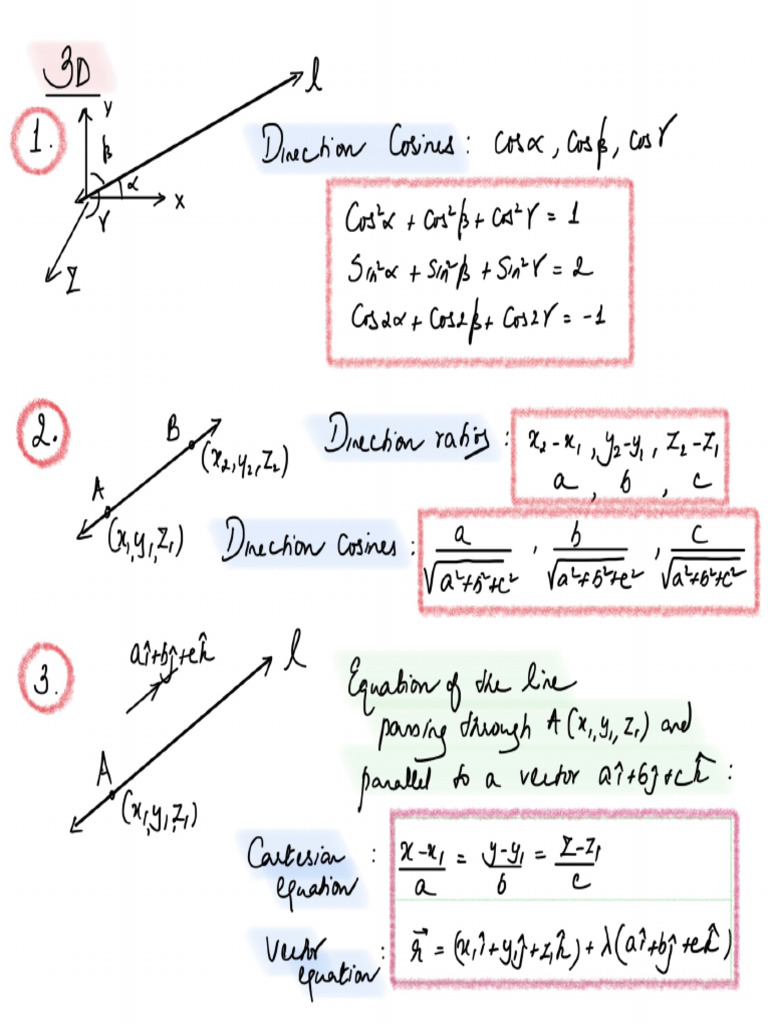 3D
1.
Y
l
β
α
X
γ
Z
Direction Cosines : cosα, cosβ, cosγ
Cos²α + Cos²β + Cos²γ = 1
Sin²α + Sin²β + Sin²γ = 2
Cos2α + Cos2β + Cos2γ = -1
2.
B
(x₂, y₂, z₂)
A
(x₁, y₁, z₁)
Direction ratios : x₂-x₁, y₂-y₁, z₂-z₁
a, b, c
Direction Cosines : a/√(a²+b²+c²), b/√(a²+b²+c²), c/√(a²+b²+c²)
3.
aî+bĵ+ck̂
l
A
(x₁, y₁, z₁)
Equation of the line
passing through A(x₁, y₁, z₁) and
parallel to a vector aî+bĵ+ck̂ :
Cartesian equation : (x-x₁)/a = (y-y₁)/b = (z-z₁)/c
Vector equation : r⃗ = (x₁î+y₁ĵ+z₁k̂) + λ(aî+bĵ+ck̂)